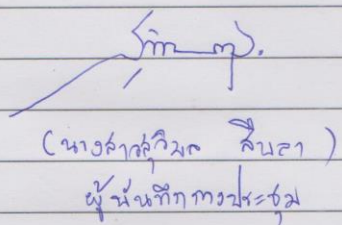 (นางสาวสุวิมล สืบลา)
ผู้บันทึกการประชุม